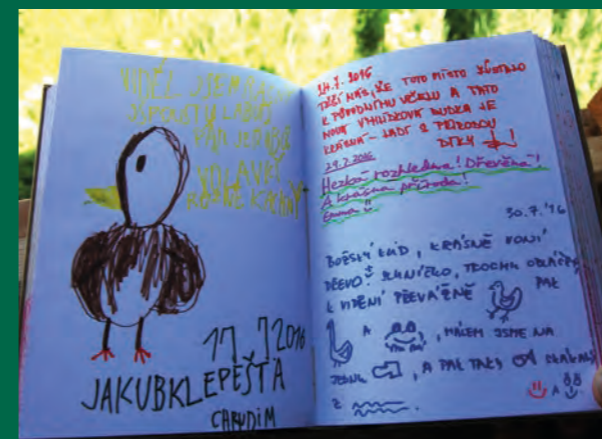 VIDĚL JSEM
SPOUSTU LABUŤ
PÁR
VOLAVEK
RODINE KACHNY
17.7 2016
JAKUBKLEPEŠTA
CHRUDIM
24.7.2016
TĚŠÍ NÁS, ŽE TOTO MÍSTO
K PŮVODNÍMU VČELU A TATO
NOVÁ VYHLÍDKOVÁ BUDKA JE
KRÁSNÁ - LADÍ S PŘÍRODOU
DÍKY
29.7.2016
Hezká rozhledna! Dřevěná!
A krásná příroda!
Emma
30.7.'16
BOŽSKÝ KLID, KRÁSNĚ VONÍ
DŘEVO! SLUNÍČKO, TROCHU OBLÁČKŮ,
K VIDĚNÍ PŘEVÁŽNĚ PAK
A , MÁLEM JSME NA
JEDNU , A PAK TAKY
Z
A